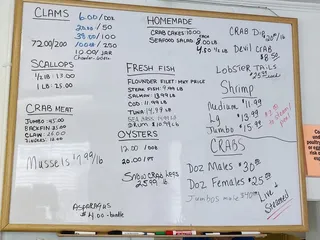 CLAMS
6.00/DOZ
20.00/50
38.00/100
72.00/200
SCALLOPS
1/2 LB: 13.00
1 LB: 25.00
CRAB MEAT
JUMBO: 45.00
BACKFIN: 35.00
CLAW:
Mussels $7.99/lb
ASPARAGUS
$4.00-bundle
HOMEMADE
CRAB CAKES: 10.00 Each
SEAFOOD SALAD: 8.00 LB
4.50 1/2 LB
FRESH FISH
FLOUNDER FILET: MKT PRICE
STEAK FISH: 9.99 LB
SALMON: 13.99 LB
COD: 11.99 LB
TUNA: 14.99 LB
DRUM: $10.99/LB
OYSTERS
12.00 /DOZ
20.00/PT
SNOW CRAB LEGS
25.99 lb
CRAB DIP
$20.00/lb
Devil CRAB
$8.50
Lobster TAILS
$25.00
Shrimp
Medium $11.99
Lg $13.99
Jumbo $15.99
CRABS
Doz Males $30.00
Doz Females $25.00
Jumbos male $40.00
Live &
Steamed!